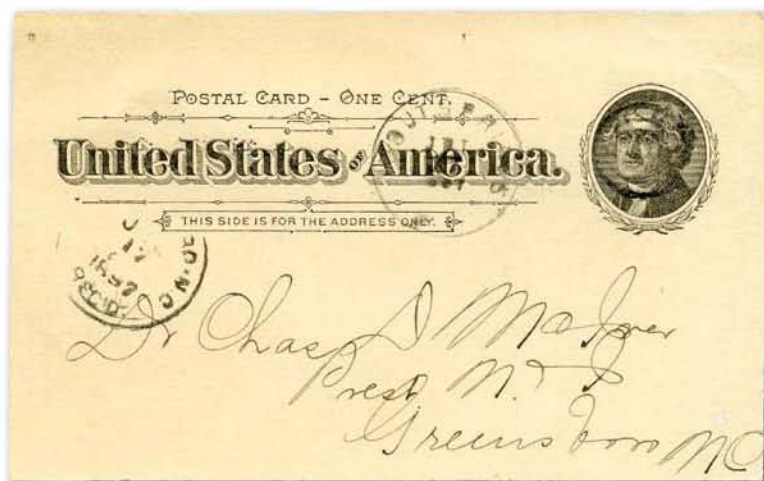 POSTAL CARD - ONE CENT.
United States OF America.
THIS SIDE IS FOR THE ADDRESS ONLY.
17
1897
REC'D.
Dr Chas D McIver
Prest N. & I
Greensboro NC